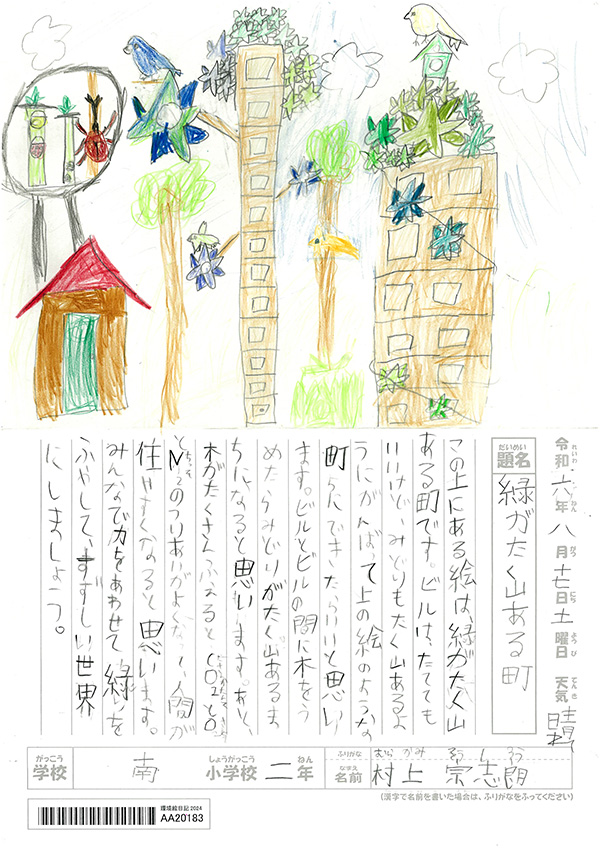 令和六年八月十七日土曜日 天気 晴れ
れいわ ねん がつ にち ようび てんき
題名 緑がたく山ある町
だいめい
この上にある絵は、緑がたく山
ある町です。ビルは、たてても
いいけど、みどりもたく山あるよ
うにがんばって上の絵のような
町らにできたらいいと思い
ます。ビルとビルの間に木をう
めたらみどりがたく山あるま
ちになると思います。あと、
木がたくさんふえるとCO2とO
とN2のつりあいがよくなって人間が
住みやすくなると思います。
みんなで力をあわせて緑を
ふやして、すずしい世界
にしましょう。
がっこう しょうがっこう ねん ふりがな むら かみ そう し ろう
学校 南 小学校 二年 名前 村上 宗志朗
なまえ
(漢字で名前を書いた場合は、ふりがなをふってください)
環境絵日記2024
AA20183